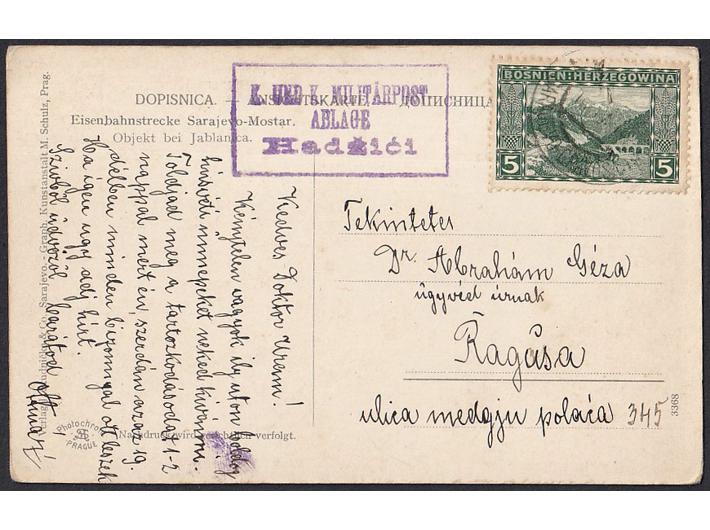 DOPISNICA. — ANSICHTSKARTE. — ДОПИСНИЦА
Eisenbahnstrecke Sarajevo-Mostar.
Objekt bei Jablanica.
K. UND K. MILITÄRPOST
ABLAGE
Hadžići
BOSNIEN-HERZEGOWINA
5 5
Kedves Doktor Uram!
Kénytelen vagyok ily uton boldog
húsvéti ünnepeket neked kivánni.
Toldjad meg a tartozkodásodat 1-2
nappal mert én, szerdán azaz 19.
délben minden bizonnyal ott leszek
Ha igen ugy adj hírt.
Szivből üdvözöl barátod
Tekintetes
Dr. Abrahám Géza
ügyvéd úrnak
Ragusa
ulica medgju polača 345
Sarajevo. — Graph. Kunstanstalt M. Schulz, Prag.
Photochrom
PRAGUE
Nachdruck wird gerichtlich verfolgt.
3368